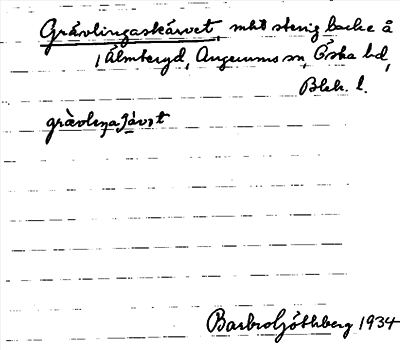 Grävlingaskärvet, mkt stenig backe å
Älmteryd, Augerums sn, Östra hd,
Blek. l.
grävleŋa
Barbro Göthberg 1934